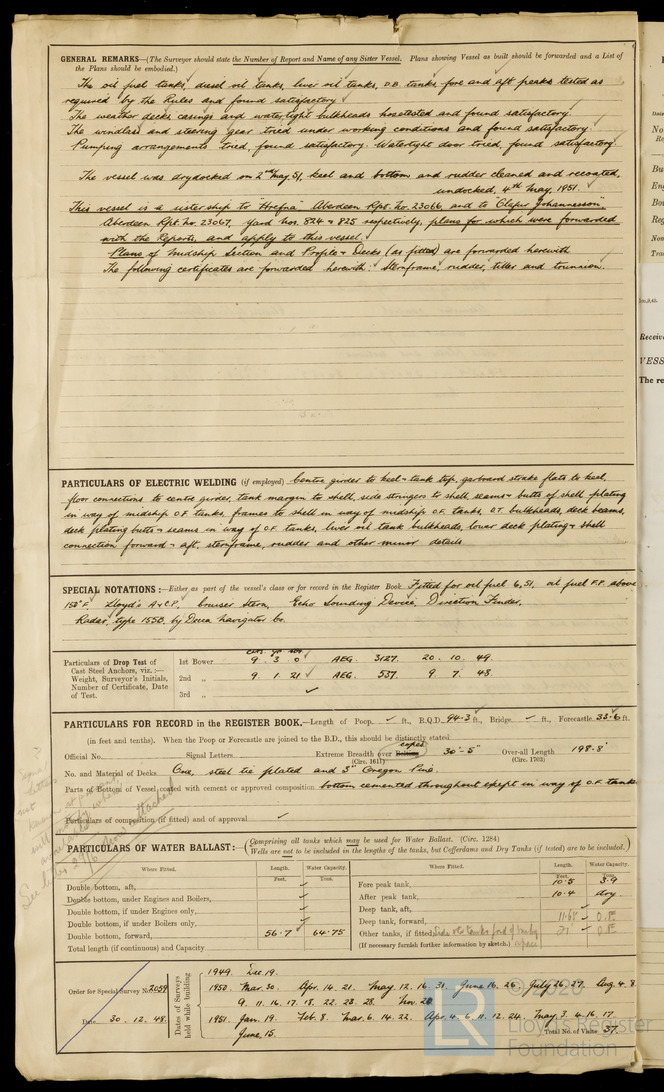 GENERAL REMARKS—(The Surveyor should state the Number of Report and Name of any Sister Vessel. Plans showing Vessel as built should be forwarded and a List of
the Plans should be embodied.)
The oil fuel tanks, diesel oil tanks, liver oil tanks, D.B. tanks fore and aft peaks tested as
required by the Rules and found satisfactory
The weather decks casings and watertight bulkheads hosetested and found satisfactory.
The windlass and steering gear tried under working conditions and found satisfactory.
Pumping arrangements tried, found satisfactory. Watertight door tried, found satisfactory.
The vessel was drydocked on 2nd May, 51, keel and bottom and rudder cleaned and recoated,
undocked, 4th May, 1951.
This vessel is a sistership to "Hrefna" Aberdeen Rpt. No. 23066, and to "Olafur Johannesson",
Aberdeen Rpt. No. 23067, Yard Nos. 824 & 825 respectively, plans for which were forwarded
with the Reports, and apply to this vessel.
Plans of Midship Section and Profile & Decks (as fitted) are forwarded herewith
The following certificates are forwarded herewith: Sternframe, rudder, tiller and trunnion.
PARTICULARS OF ELECTRIC WELDING (if employed) Centre girder to keel & tank top, garboard strake flats to keel,
floor connections to centre girder, tank margin to shell, side stringers to shell seams & butts of shell plating
in way of midship O.F. tanks, frames to shell in way of midship O.F. tanks, O.T. bulkheads, deck beams,
deck plating butts & seams in way of O.F. tanks, liver oil tank bulkheads, lower deck plating & shell
connection forward & aft, sternframe, rudder and other minor details
SPECIAL NOTATIONS:—Either as part of the vessel's class or for record in the Register Book Fitted for oil fuel 6,51, oil fuel F.P. above
150°F. Lloyd's A & C.P., Cruiser Stern, Echo Sounding Device, Direction Finder,
Radar, type 155D. by Decca Navigator Co.
Particulars of Drop Test of
Cast Steel Anchors, viz.:—
Weight, Surveyor's Initials,
Number of Certificate, Date
of Test.
cwts qr lbs
1st Bower 9 3 0 AEG. 3127. 20. 10. 49.
2nd „ 9 1 21 AEG. 537. 9 7. 48.
3rd „
PARTICULARS FOR RECORD in the REGISTER BOOK.—Length of Poop, ft., R.Q.D. 94.3 ft., Bridge, ft., Forecastle 33.6 ft.
(in feet and tenths). When the Poop or Forecastle are joined to the B.D., this should be distinctly stated
Official No. Signal Letters Extreme Breadth over Belting 30'-5" Over-all Length 198.8'
(Circ. 1611) (Circ. 1703)
No. and Material of Decks One, steel tie plated and 3" Oregon Pine.
Parts of Bottom of Vessel coated with cement or approved composition bottom cemented throughout except in way of O.F. tanks
Particulars of composition (if fitted) and of approval
PARTICULARS OF WATER BALLAST: (Comprising all tanks which may be used for Water Ballast. (Circ. 1284)
Wells are not to be included in the lengths of the tanks, but Cofferdams and Dry Tanks (if tested) are to be included.)
Where Fitted. Length. Water Capacity. Where Fitted. Length. Water Capacity.
Feet. Tons. Feet. Tons.
Double bottom, aft,
Double bottom, under Engines and Boilers,
Double bottom, if under Engines only,
Double bottom, if under Boilers only,
Double bottom, forward, 56.7 64.75
Total length (if continuous) and Capacity
Fore peak tank, 10.5 3.9
After peak tank, 10.4 dry
Deep tank, aft,
Deep tank, forward,
Other tanks, if fitted,
(If necessary furnish further information by sketch.)
Order for Special Survey No. 2059
Date 30. 12. 48.
Dates of Surveys
held while building
1949. Dec. 19.
1950. Mar. 30. Apr. 14. 21. May. 12. 16. 31. June 16. 26. July 26. 27. Aug. 4. 8.
9. 11. 16. 17. 18. 22. 23. 28. Nov. 28
1951. Jan. 19. Feb. 8. Mar. 6. 14. 22. Apr. 4. 6. 11. 12. 24. May. 3. 4. 16. 17
June, 15.
Total No. of Visits 37.
LR
© 2020
Lloyd's Register
Foundation
Receive
VESS
The re